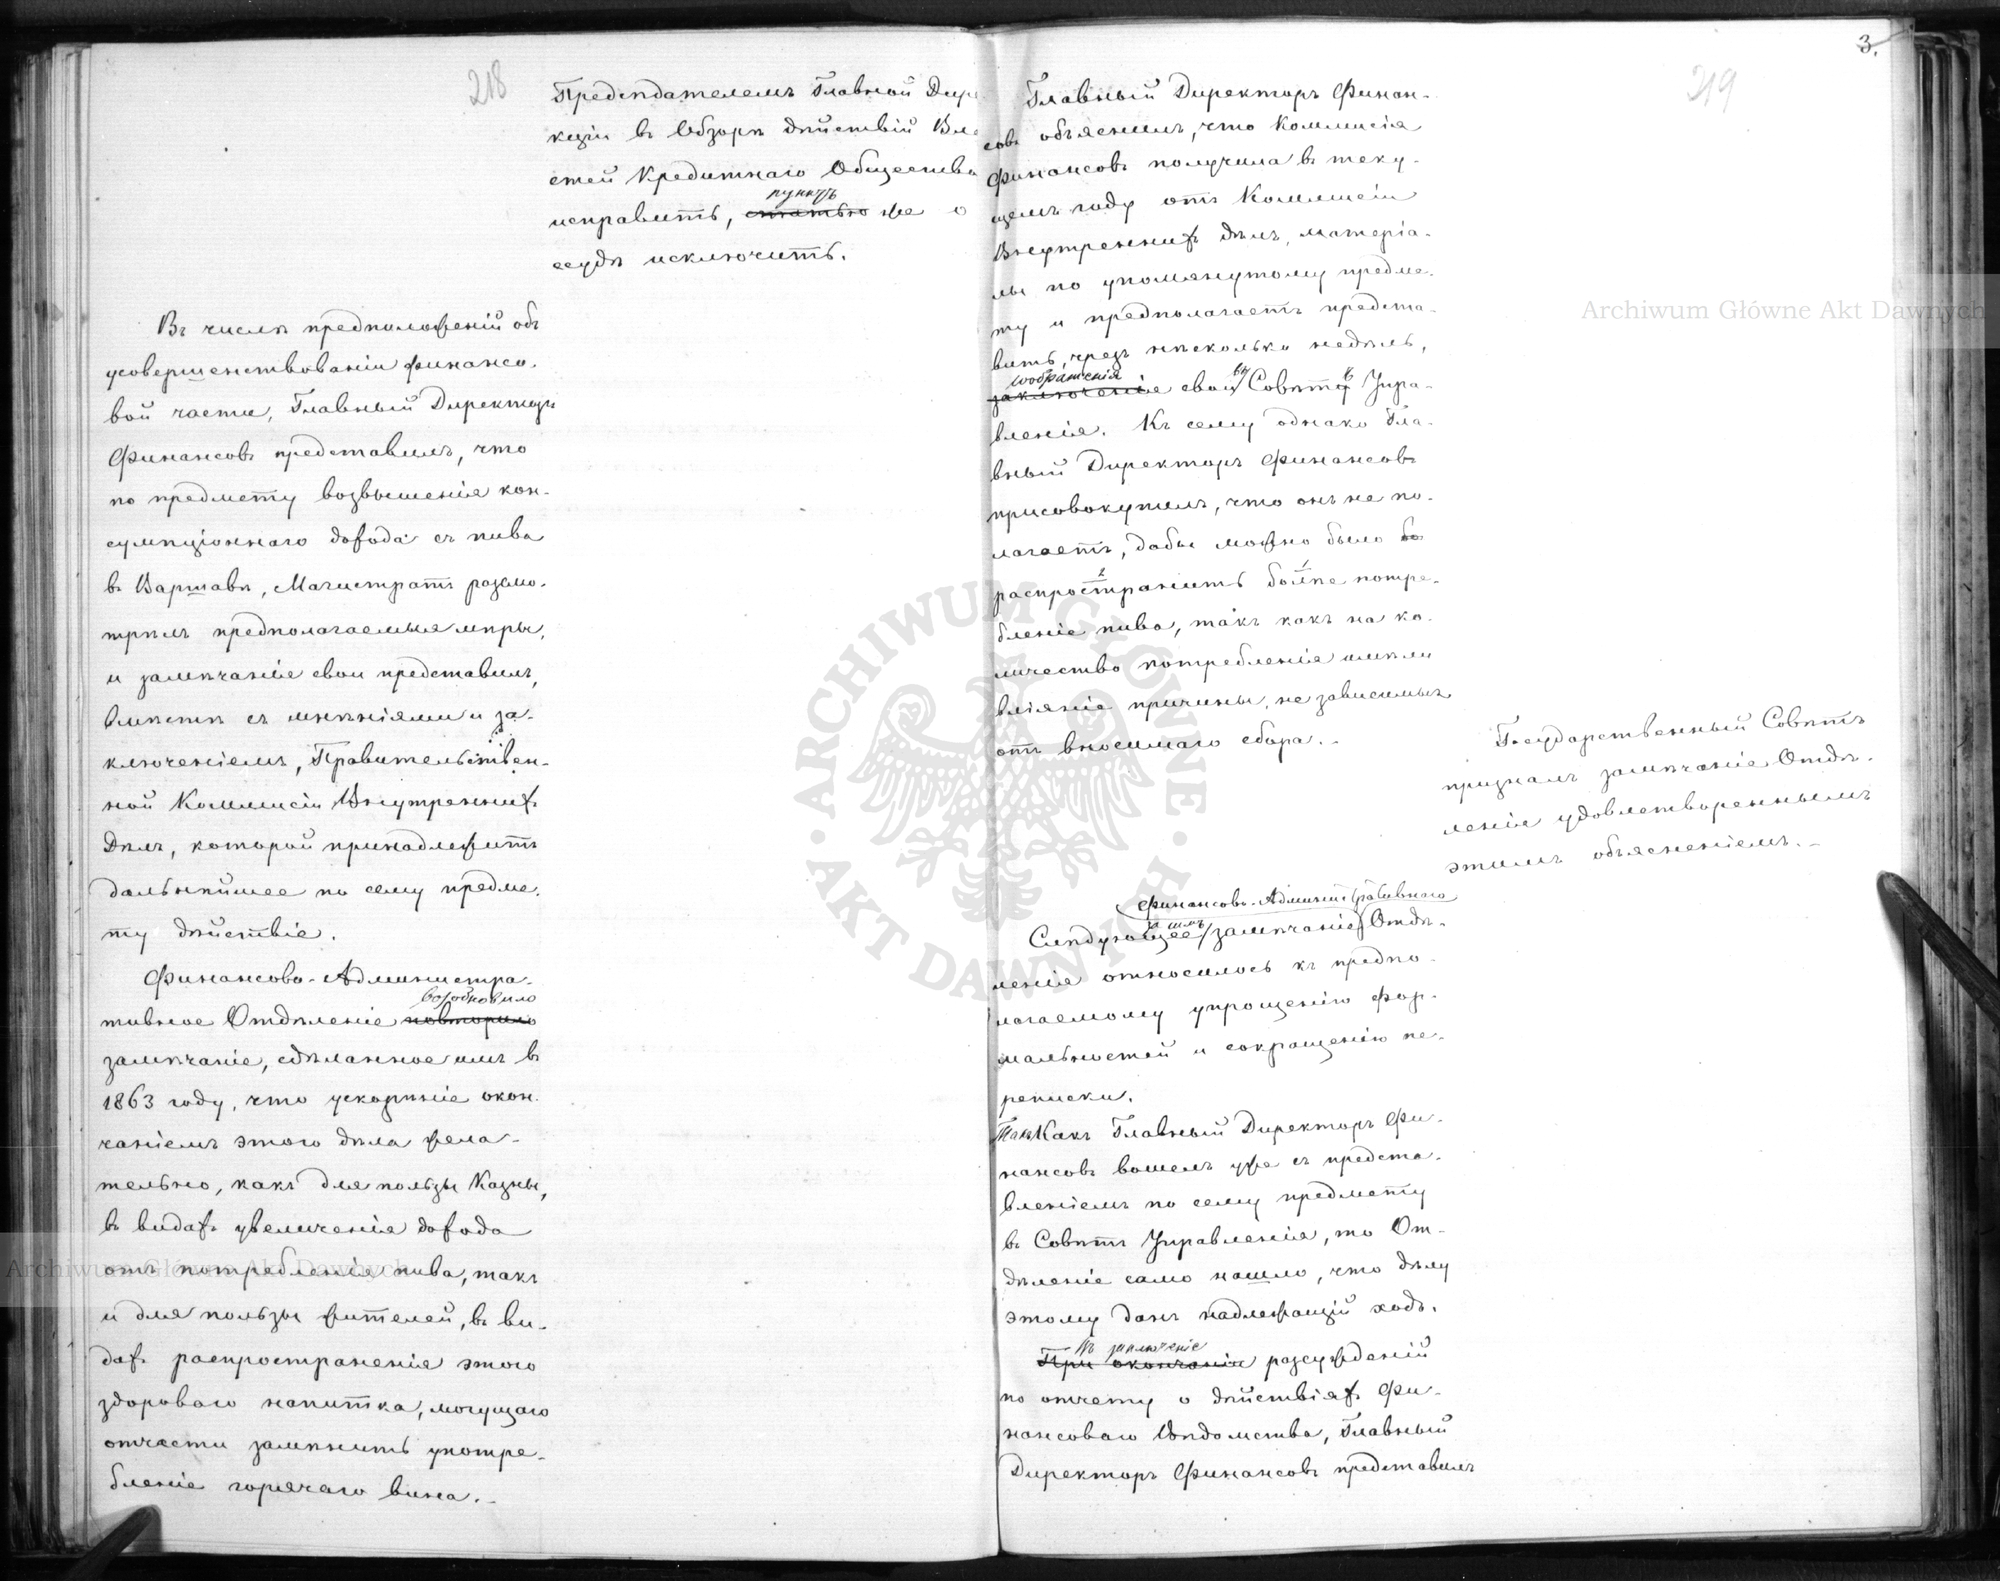 218
Предсѣдателемъ Главной Дире
кціи въ Обзорѣ дѣйствій Вла
стей Кредитнаго Общества
пунктъ
исправить, статью же о
ссудѣ исключить.
Въ числѣ предположеній объ
усовершенствованіи финансо-
вой части, Главный Директоръ
Финансовъ представилъ, что
по предмету возвышенія кон-
сумпціоннаго дохода съ пива
въ Варшавѣ, Магистратъ разсмо-
трѣлъ предполагаемыя мѣры,
и замѣчанія свои представилъ,
вмѣстѣ съ мнѣніями и за-
ключеніемъ, Правительствен-
ной Коммисіи Внутреннихъ
Дѣлъ, которой принадлежитъ
дальнѣйшее по сему предме-
ту дѣйствіе.
Финансово-Администра-
возобновило
тивное Отдѣленіе повторило
замѣчаніе, сдѣланное имъ въ
1863 году, что ускореніе окон-
чаніемъ этого дѣла жела-
тельно, какъ для пользы Казны,
въ видахъ увеличенія дохода
отъ потребленія пива, такъ
и для пользы жителей, въ ви-
дахъ распространенія этого
здороваго напитка, могущаго
отчасти замѣнить употре-
бленіе горячаго вина.
3.
219
Главный Директоръ Финан-
совъ объяснилъ, что Коммисія
Финансовъ получила въ теку-
щемъ году отъ Коммисіи
Внутреннихъ дѣлъ, матеріа-
лы по упомянутому предме-
ту и предполагаетъ предста-
вить, чрезъ нѣсколько недѣль,
соображенія
заключеніе свои въ Совѣтъ Упра-
вленія. Къ сему однако Гла-
вный Директоръ Финансовъ
присовокупилъ, что онъ не по-
лагаетъ, дабы можно было бо
2 1
распространить болѣе потре-
бленіе пива, такъ какъ на ко-
личество потребленія имѣли
вліяніе причины, не зависимыя
отъ вносимаго сбора.
Государственный Совѣтъ
призналъ замѣчаніе Отдѣ-
ленія удовлетвореннымъ
этимъ объясненіемъ.
Финансово-Административнаго
за симъ
Слѣдующее замѣчаніе Отдѣ-
ленія относилось къ предпо-
лагаемому упрощенію фор-
мальностей и сокращенію пе-
реписки.
Такъ Какъ Главный Директоръ Фи-
нансовъ вошелъ уже съ предста-
вленіемъ по сему предмету
въ Совѣтъ Управленія, то От-
дѣленіе само нашло, что дѣлу
этому данъ надлежащій ходъ.
Въ заключеніе
При окончаніи разсужденій
по отчету о дѣйствіяхъ Фи-
нансоваго Вѣдомства, Главный
Директоръ Финансовъ представилъ
Archiwum Główne Akt Dawnych
Archiwum Główne Akt Dawnych
ARCHIWUM GŁÓWNE · AKT DAWNYCH ·